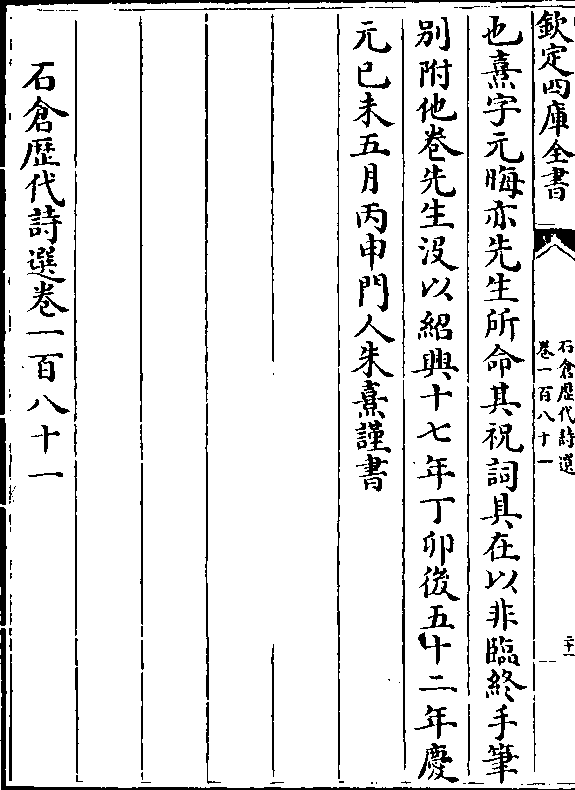 欽定四庫全書
石倉歴代詩選
卷一百八十一
二十一
也熹字元晦亦先生所命其祝詞具在以非臨終手筆
別附他卷先生没以紹興十七年丁卯後五十二年慶
元已未五月丙申門人朱熹謹書
石倉歴代詩選卷一百八十一